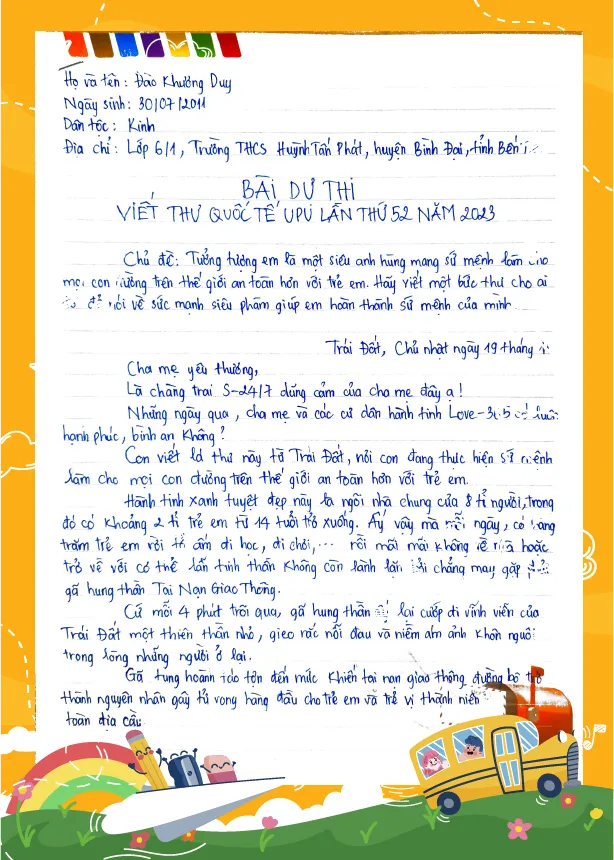 Họ và tên : Đào Khương Duy
Ngày sinh : 30/07/2011
Dân tộc : Kinh
Địa chỉ : Lớp 6/1, Trường THCS Huỳnh Tấn Phát, huyện Bình Đại, tỉnh Bến
BÀI DỰ THI
VIẾT THƯ QUỐC TẾ UPU LẦN THỨ 52 NĂM 2023
Chủ đề: Tưởng tượng em là một siêu anh hùng mang sứ mệnh làm cho
mọi con đường trên thế giới an toàn hơn với trẻ em. Hãy viết một bức thư cho ai
để nói về sức mạnh siêu phàm giúp em hoàn thành sứ mệnh của mình
Trái Đất, Chủ nhật ngày 19 tháng
Cha mẹ yêu thương,
Là chàng trai S-24/7 dũng cảm của cha mẹ đây ạ!
Những ngày qua, cha mẹ và các cư dân hành tinh Love-365 có luôn
hạnh phúc, bình an không?
Con viết lá thư này từ Trái Đất, nơi con đang thực hiện sứ mệnh
làm cho mọi con đường trên thế giới an toàn hơn với trẻ em.
Hành tinh xanh tuyệt đẹp này là ngôi nhà chung của 8 tỉ người, trong
đó có khoảng 2 tỉ trẻ em từ 14 tuổi trở xuống. Ấy vậy mà mỗi ngày, có hàng
trăm trẻ em rời tổ ấm đi học, đi chơi,... rồi mãi mãi không về nữa hoặc
trở về với cơ thể lẫn tinh thần không còn lành lặn bởi chẳng may gặp phải
gã hung thần Tai Nạn Giao Thông.
Cứ mỗi 4 phút trôi qua, gã hung thần ấy lại cướp đi vĩnh viễn của
Trái Đất một thiên thần nhỏ, gieo rắc nỗi đau và niềm ám ảnh khôn nguôi
trong lòng những người ở lại.
Gã tung hoành to lớn đến mức khiến tai nạn giao thông đường bộ trở
thành nguyên nhân gây tử vong hàng đầu cho trẻ em và trẻ vị thành niên
toàn địa cầu